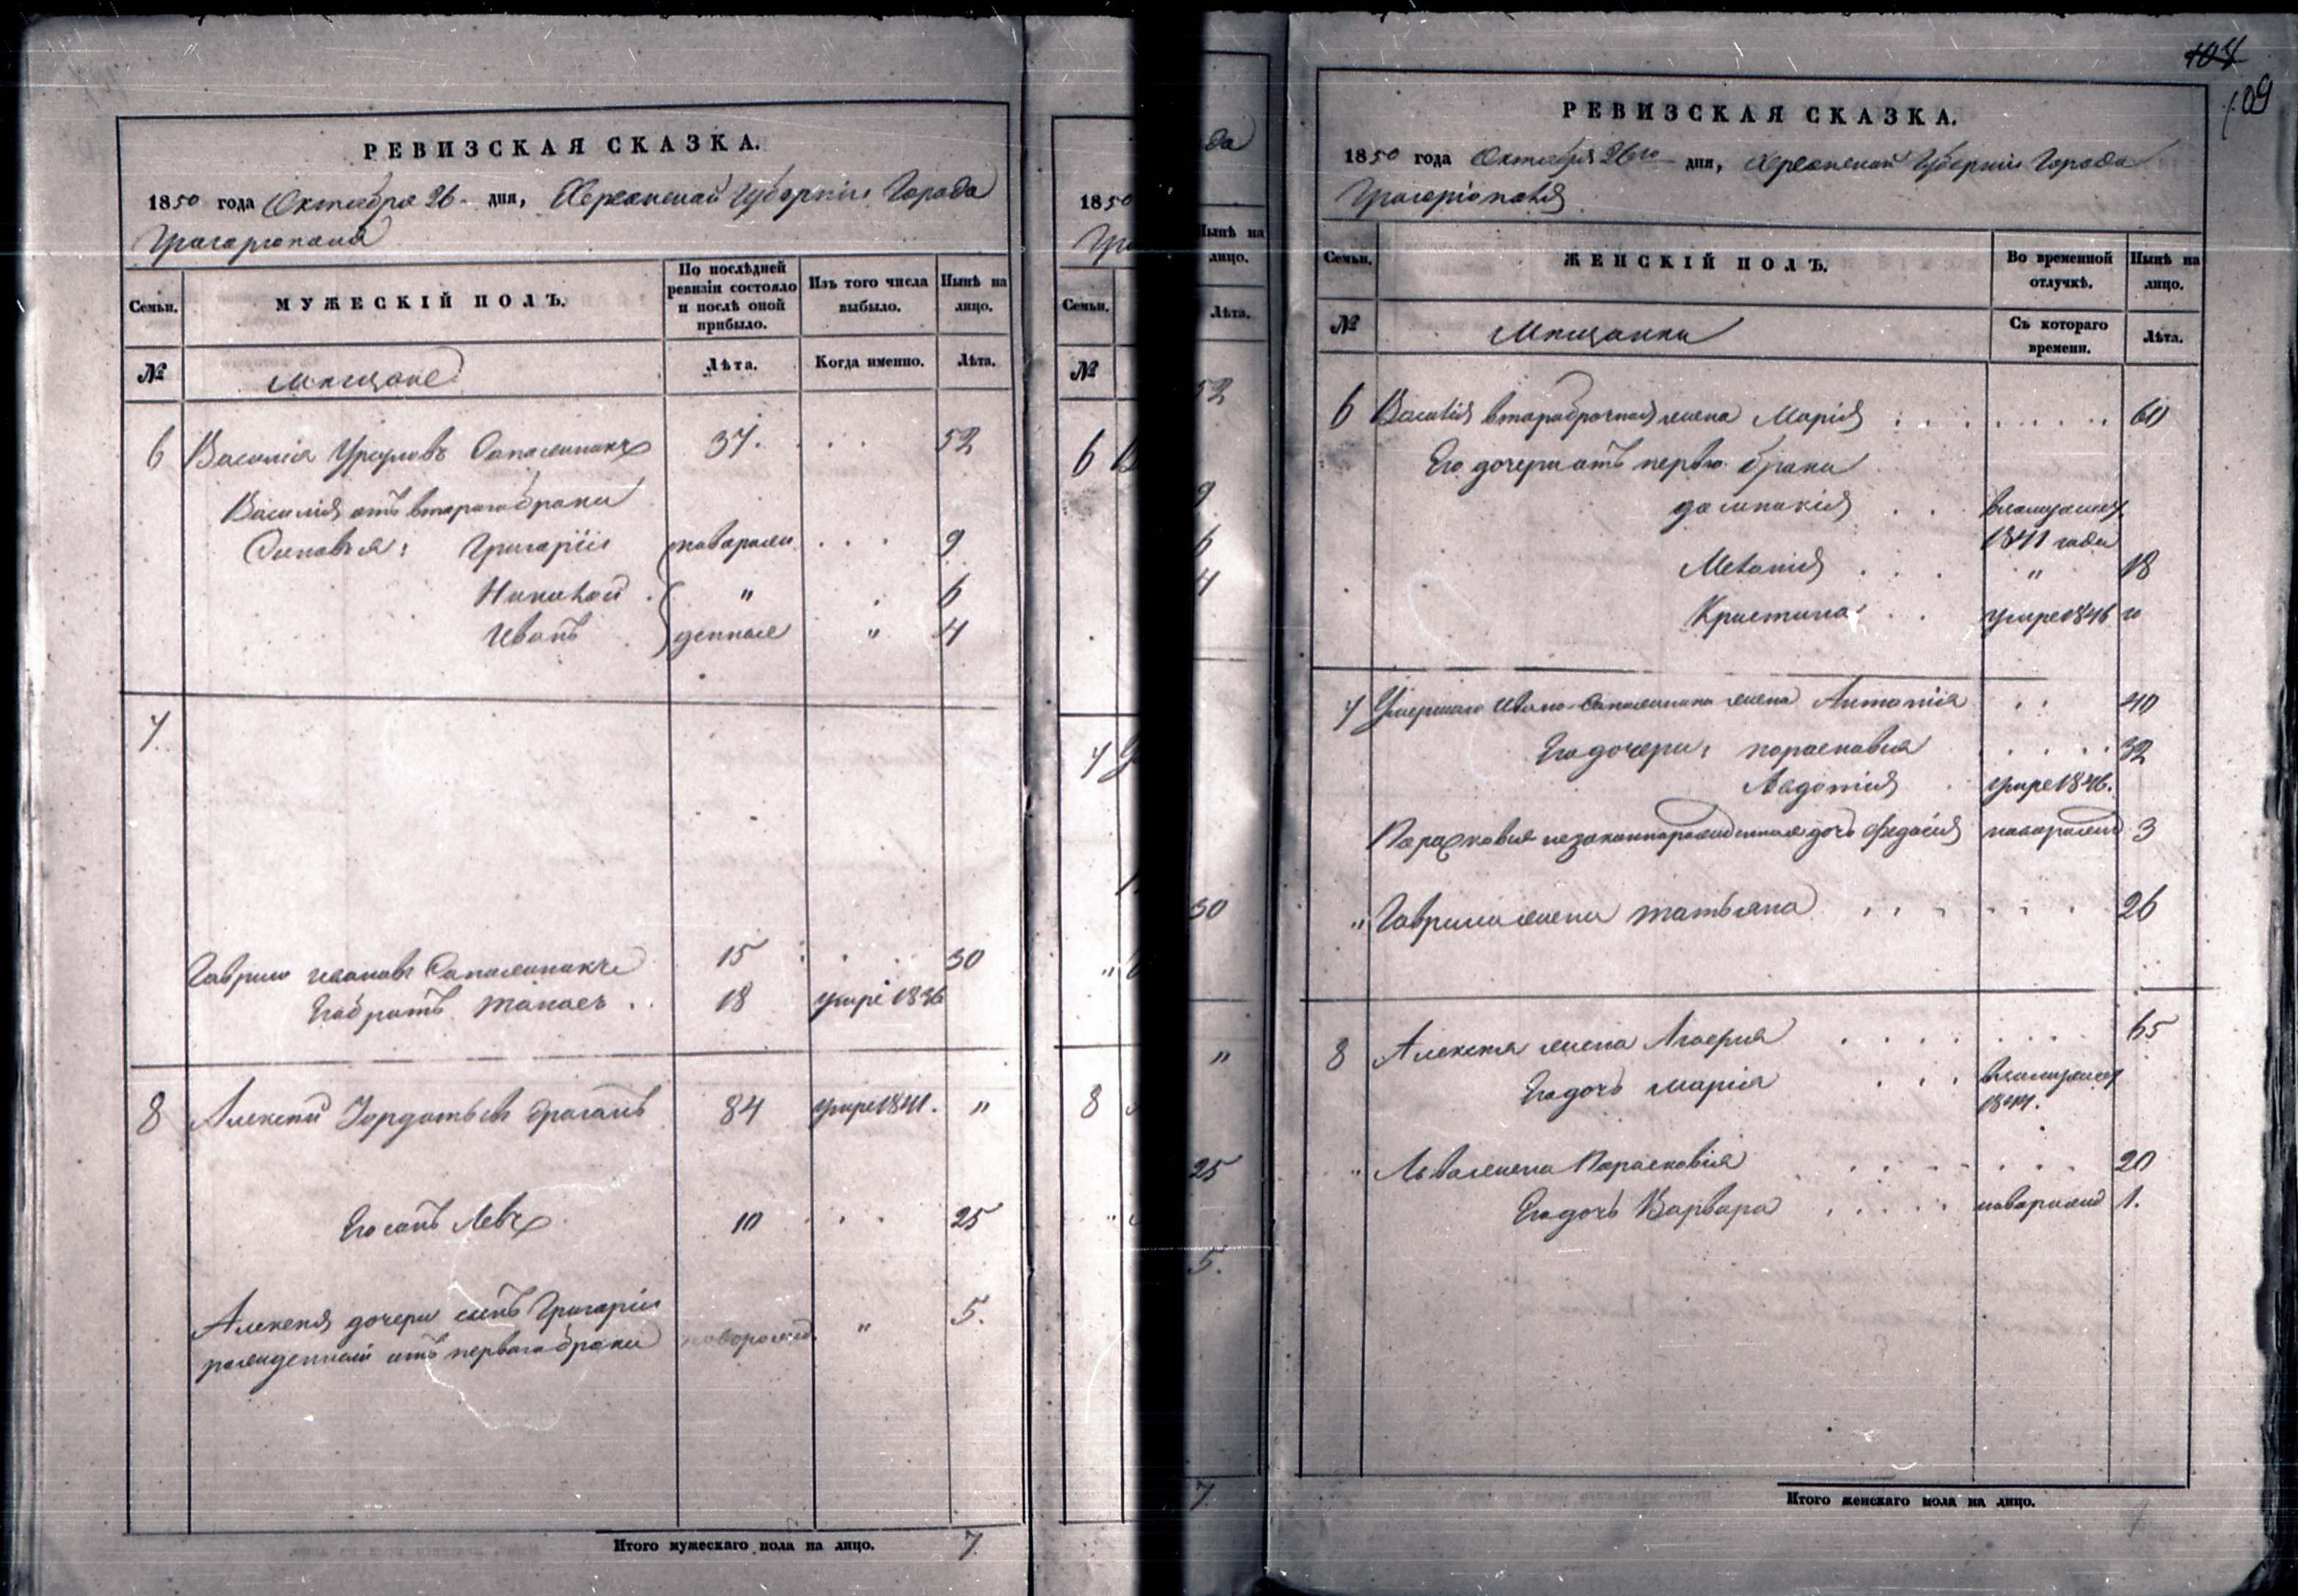 РЕВИЗСКАЯ СКАЗКА.
1850 года Октября 26 дня, Херсонской Губернии Города
Григориополя
Семьи.
МУЖЕСКІЙ ПОЛЪ.
По послѣдней ревизіи состояло и послѣ оной прибыло.
Изъ того числа выбыло.
Нынѣ на лицо.
№
мещане
Лѣта.
Когда именно.
Лѣта.
6 Василій Сапожникъ 37. 52
Василія отъ втораго брака
Сыновья: Григорій новорож 9
Николай " 6
Иванъ денные " 4
7.
Гаврило Ивановъ Сапожникъ 15 30
Его братъ Танасъ 18 умре 1836
8 Алексей Драганъ 84 умре 1841. "
Его сынъ Левъ 10 25
Алексея дочери сынъ Григорій
рожденный отъ перваго брака новорожд. " 5.
Итого мужескаго пола на лицо. 7.
1850
Семьи.
№
6
7
8
да
Нынѣ на лицо.
Лѣта.
52
9
6
4
30
"
25
5.
7
107
109
РЕВИЗСКАЯ СКАЗКА.
1850 года Октября 26го дня, Херсонской Губерніи Города
Григоріополя
Семьи.
ЖЕНСКІЙ ПОЛЪ.
Во временной отлучкѣ.
Нынѣ на лицо.
№
Мещанки
Съ котораго времени.
Лѣта.
6 Василія второбрачная жена Марія 60
Его дочери отъ перво брака
Домникія взамужест
1841 года
Меланія " 18
Кристина умре 1846 го
7 Умершаго Ивана Сапожника жена Антонія 40
Его дочери: Парасковія 32
Авдотія умре 1846.
Парасковіи незаконнорожденная дочь Федосія новорожд 3
" Гаврила жена Татьяна 26
8 Алексея жена 65
Его дочь Марія взамужест
1844.
" Льва жена Парасковія 20
Его дочь Варвара новорожд 1.
Итого женскаго пола на лицо.